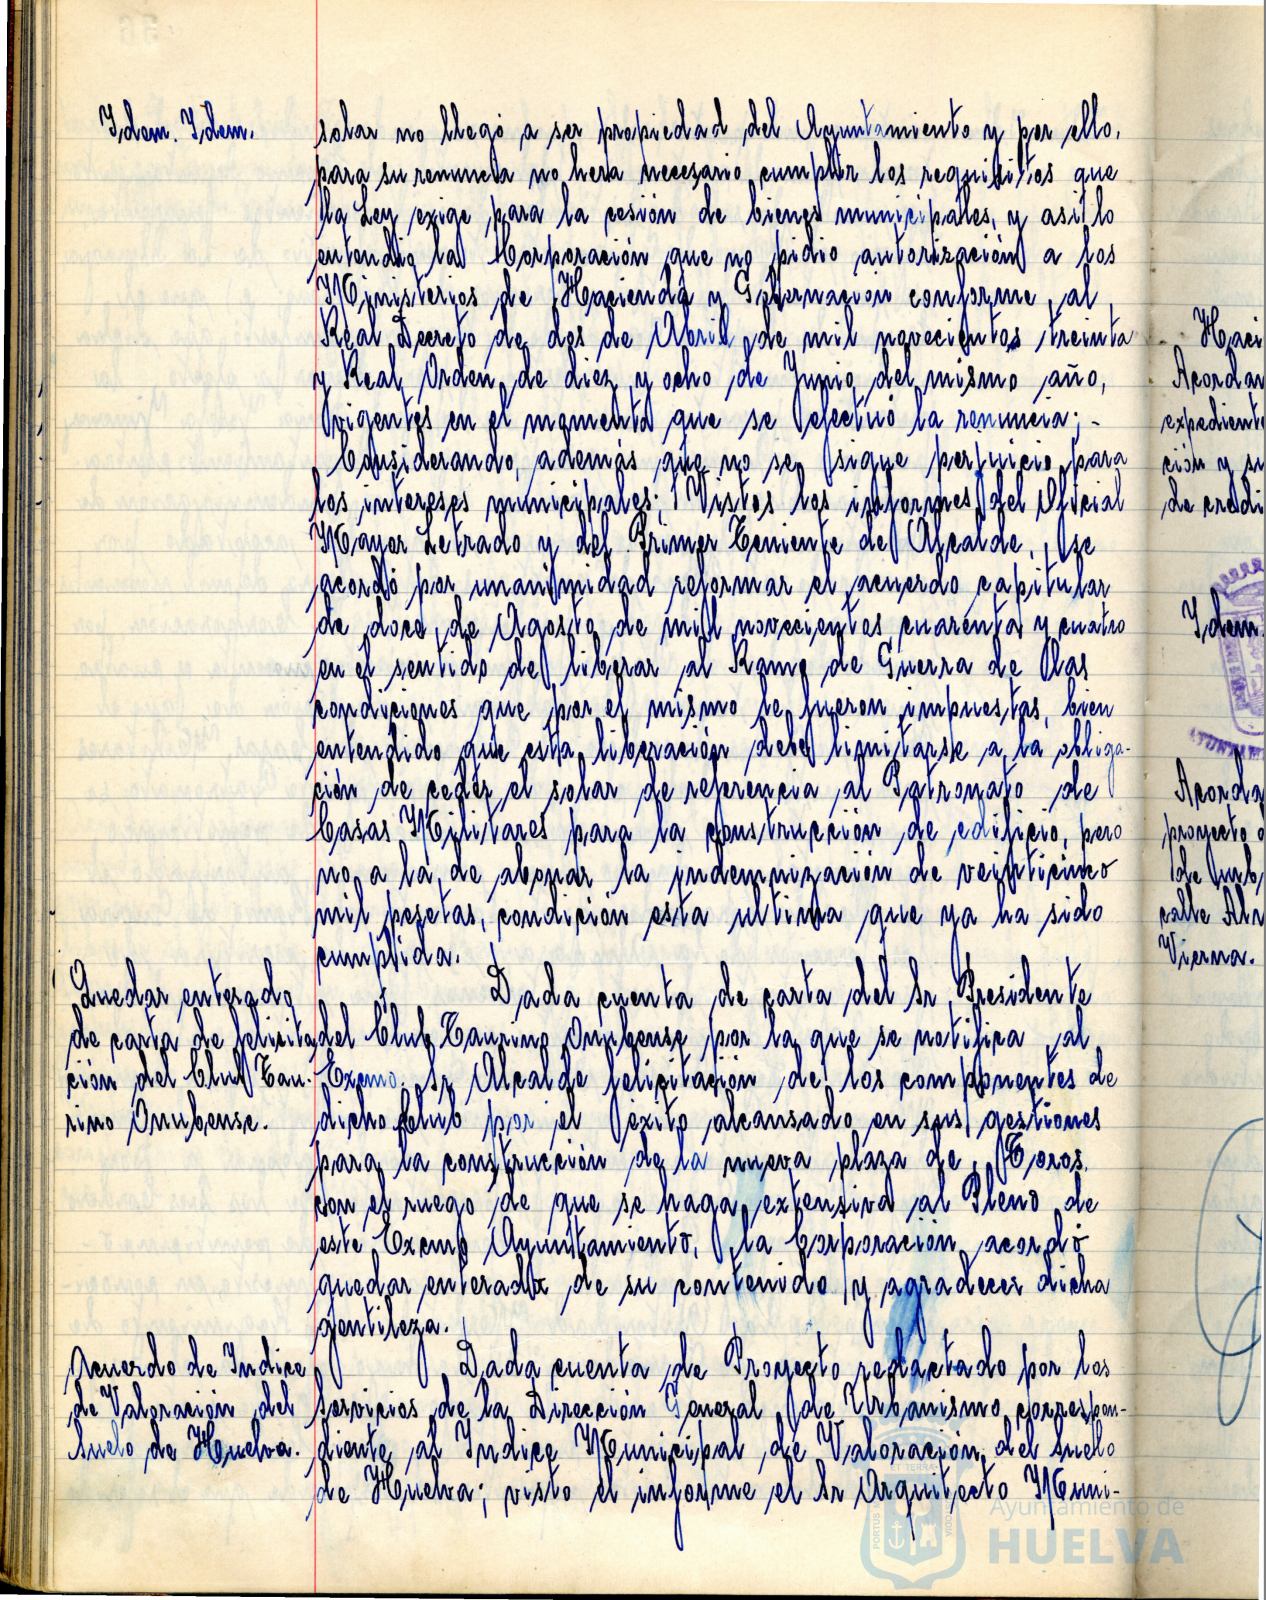 Idem. Idem.
solar no llegó a ser propiedad del Ayuntamiento y por ello,
para su renuncia no hera necesario cumplir los requisitos que
la Ley exige para la cesión de bienes municipales, y así lo
entendió la Corporación que no pidio autorización a los
Ministerios de Hacienda y Gobernación conforme al
Real Decreto de dos de Abril de mil novecientos treinta
y Real Orden de diez y ocho de Junio del mismo año,
vigentes en el momento que se efectuó la renuncia; -
Considerando, además que no se sigue perjuicio para
los intereses municipales; Vistos los informes del Oficial
Mayor Letrado y del Primer Teniente de Alcalde, se
acordó por unanimidad reformar el acuerdo capitular
de doce de Agosto de mil novecientos cuarenta y cuatro
en el sentido de liberar al Ramo de Guerra de las
condiciones que por el mismo le fueron impuestas, bien
entendido que esta liberación debe limitarse a la obliga-
ción de ceder el solar de referencia al Patronato de
Casas Militares para la construcción de edificio, pero
no a la de abonar la indemnización de veinticinco
mil pesetas, condición esta ultima que ya ha sido
cumplida.
Quedar enterado
de carta de felicita
ción del Club Tau-
rino Onubense.
Dada cuenta de carta del Sr Presidente
del Club Taurino Onubense por la que se notifica al
Excmo. Sr Alcalde felicitación de los componentes de
dicho Club por el éxito alcansado en sus gestiones
para la construcción de la nueva plaza de Toros,
con el ruego de que se haga extensiva al Pleno de
este Excmo Ayuntamiento, la Corporación acordó
quedar enterada de su contenido y agradecer dicha
gentileza.
Acuerdo de Indice
de Valoración del
Suelo de Huelva.
Dada cuenta de Proyecto redactado por los
Servicios de la Dirección General de Urbanismo correspon-
diente al Indice Municipal de Valoración del Suelo
de Huelva; visto el informe el Sr Arquitecto Muni-
Haci
Acordar
expediente
ción y su
de credi
Idem.
Acorda
proyecto d
de urb
calle Al
Vierna.
Ayuntamiento de
HUELVA